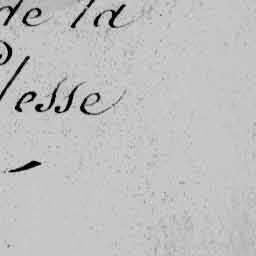 de la
lesse